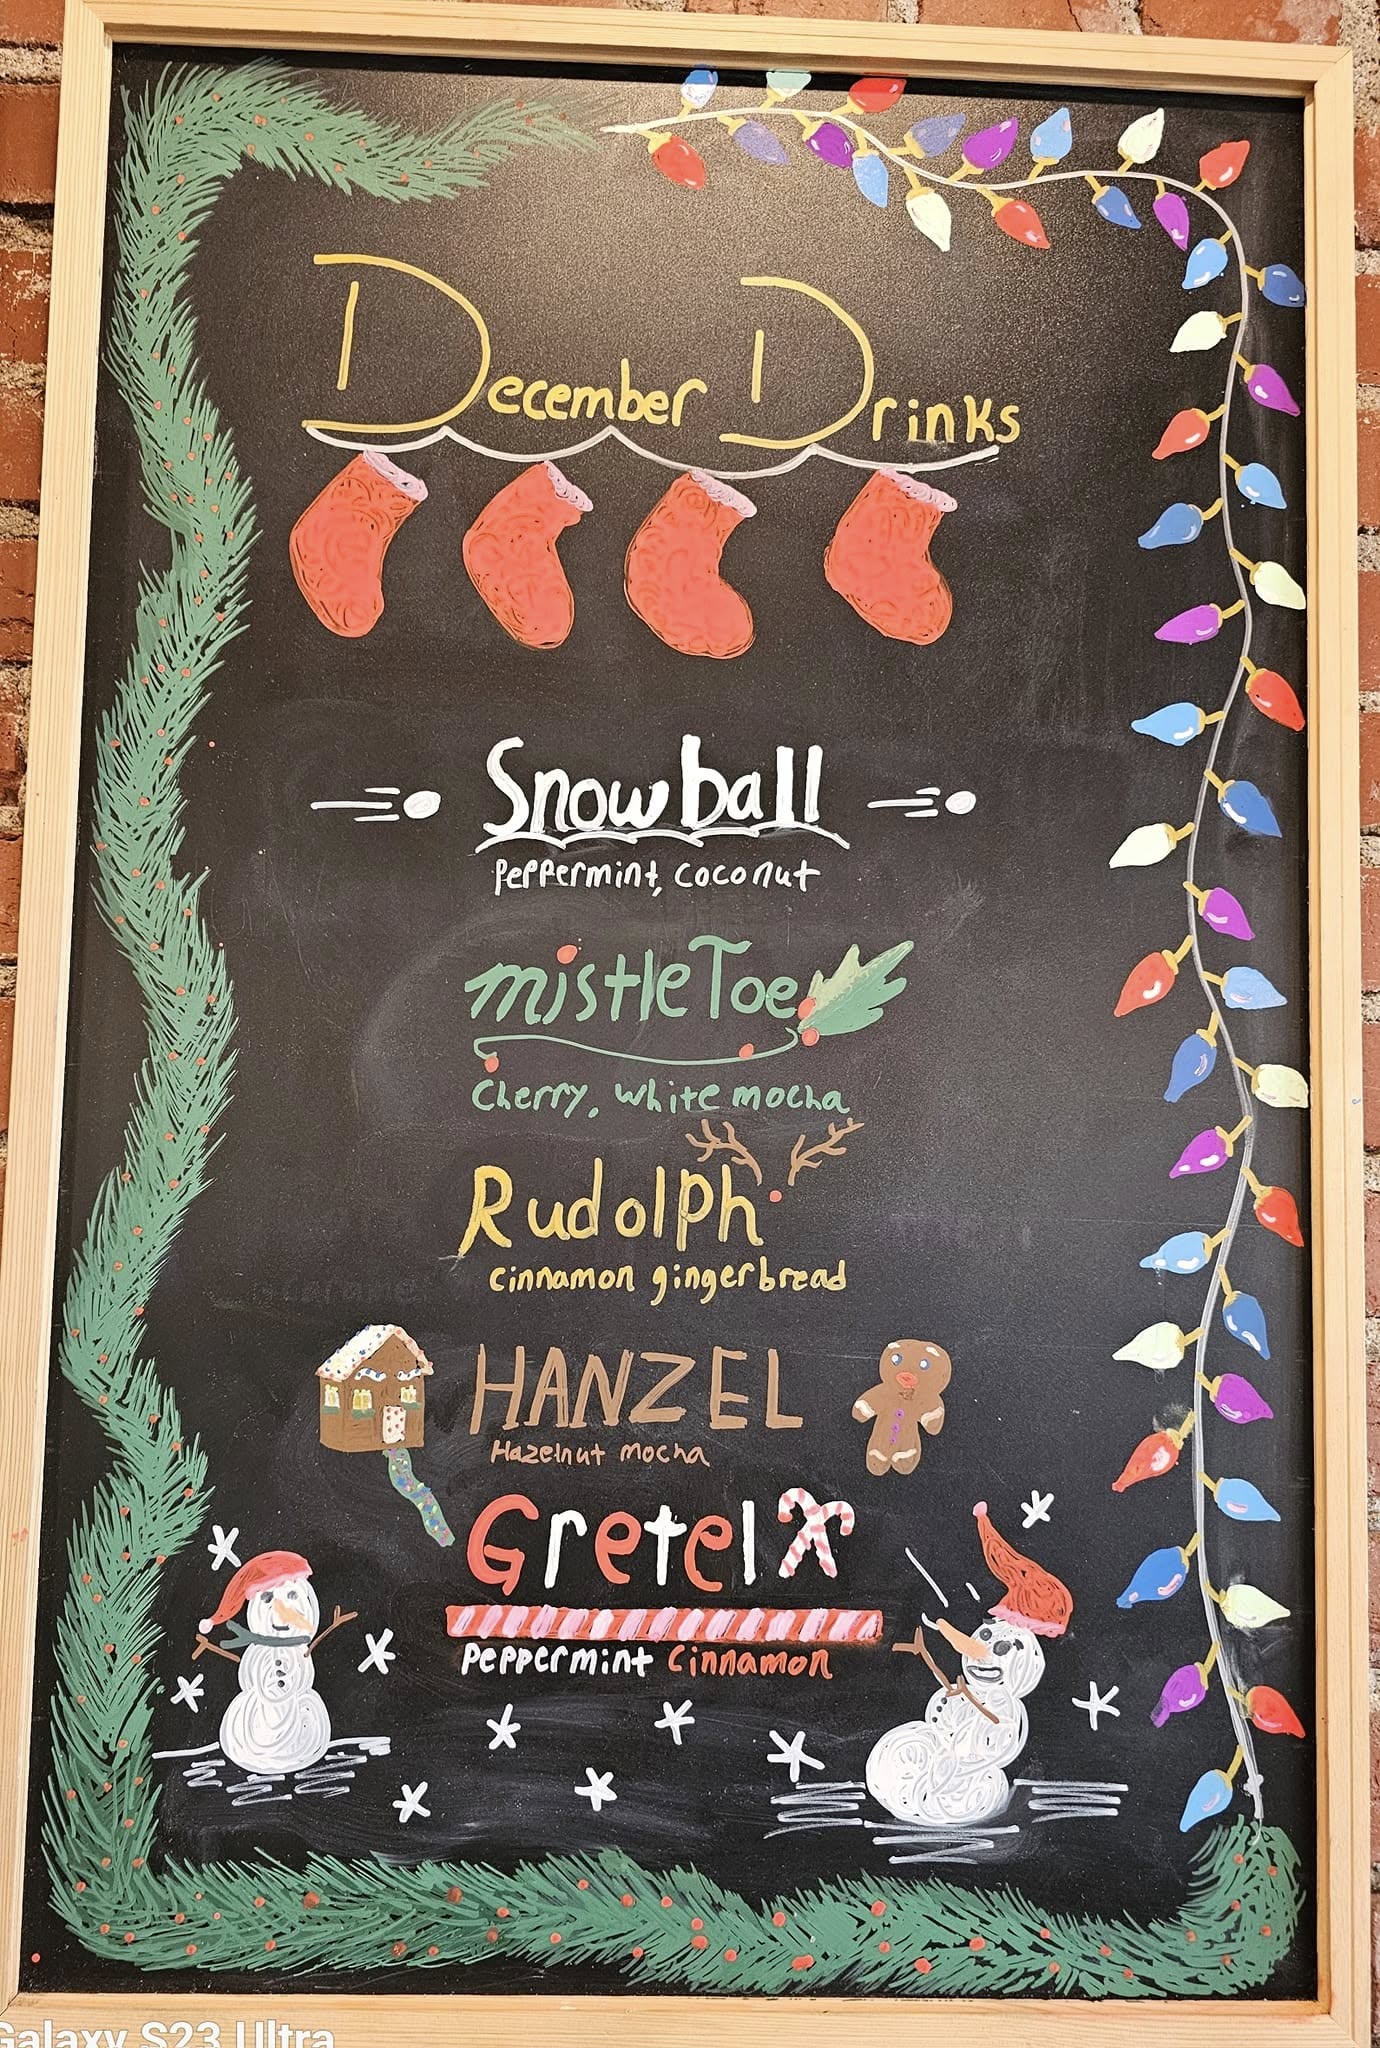 December Drinks
Snowball
Peppermint, coconut
mistleToe
Cherry, white mocha
Rudolph
cinnamon gingerbread
HANZEL
Hazelnut mocha
Gretel
Peppermint Cinnamon
Galaxy S23 Ultra